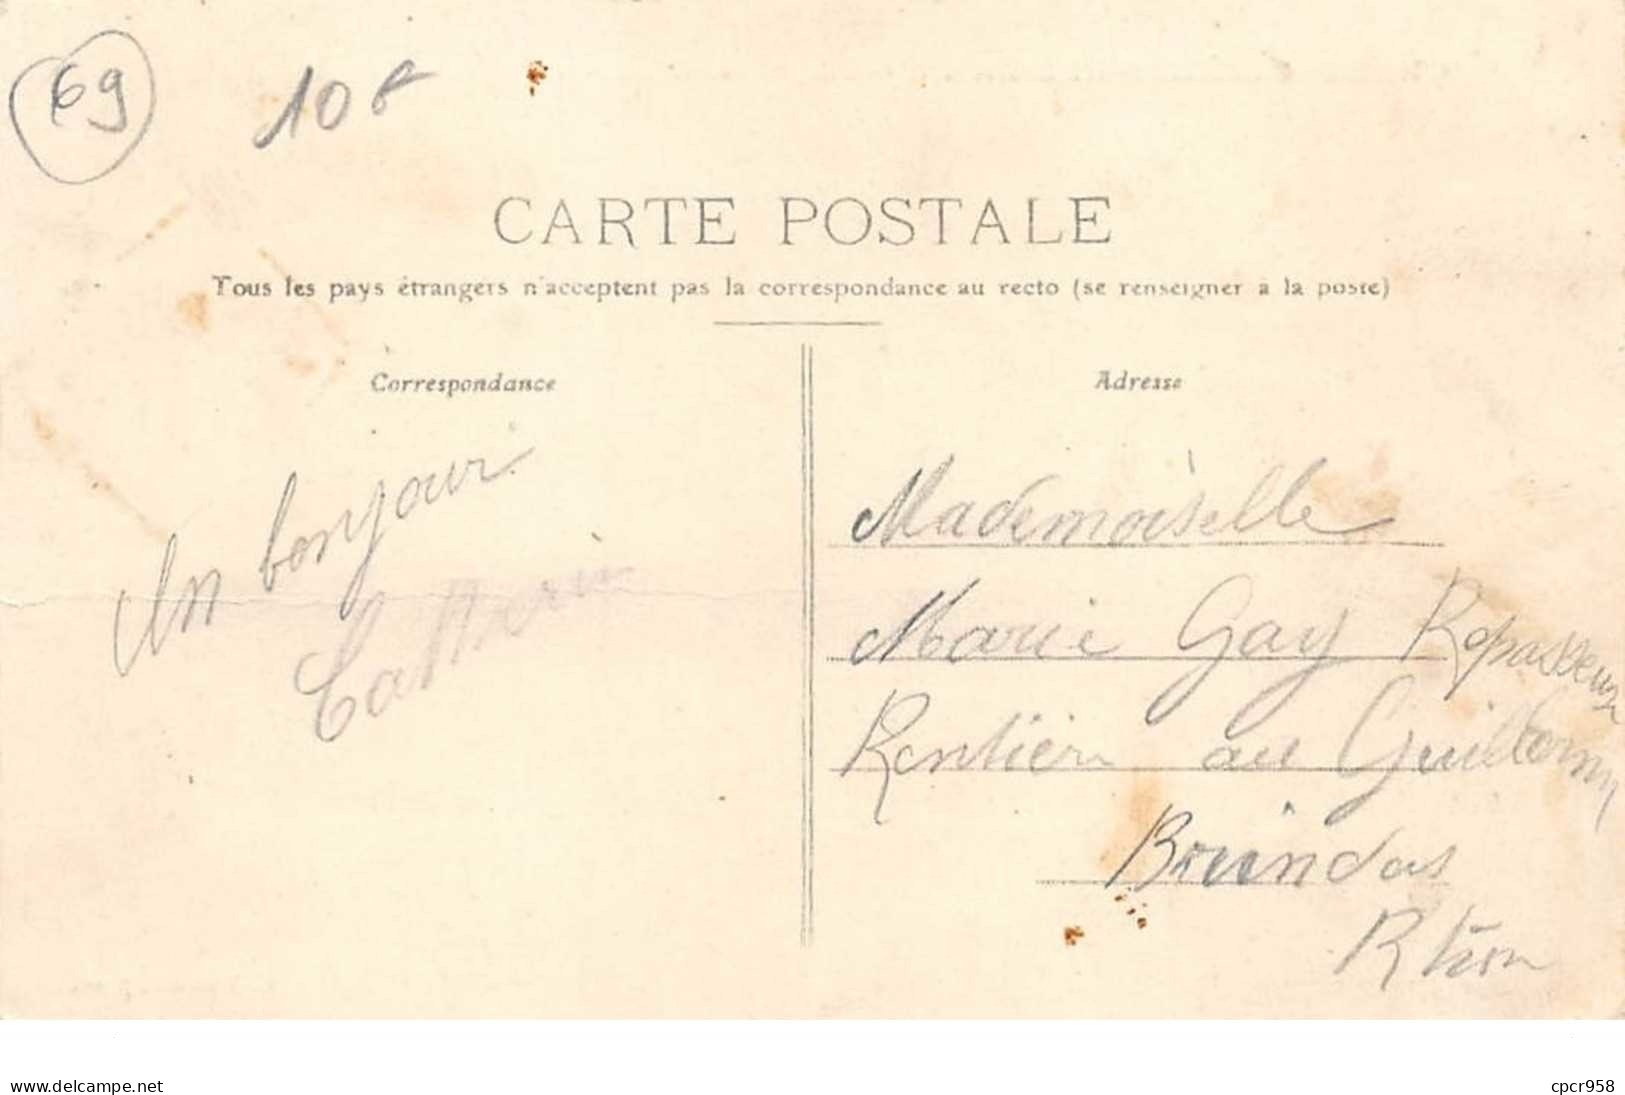 69
10F
CARTE POSTALE
Tous les pays étrangers n'acceptent pas la correspondance au recto (se renseigner à la poste)
Correspondance
Un bonjour
Adresse
Mademoiselle
Marie Gay Repasseuse
Rentière au
Brindas
Rhôn
www.delcampe.net
cpcr958